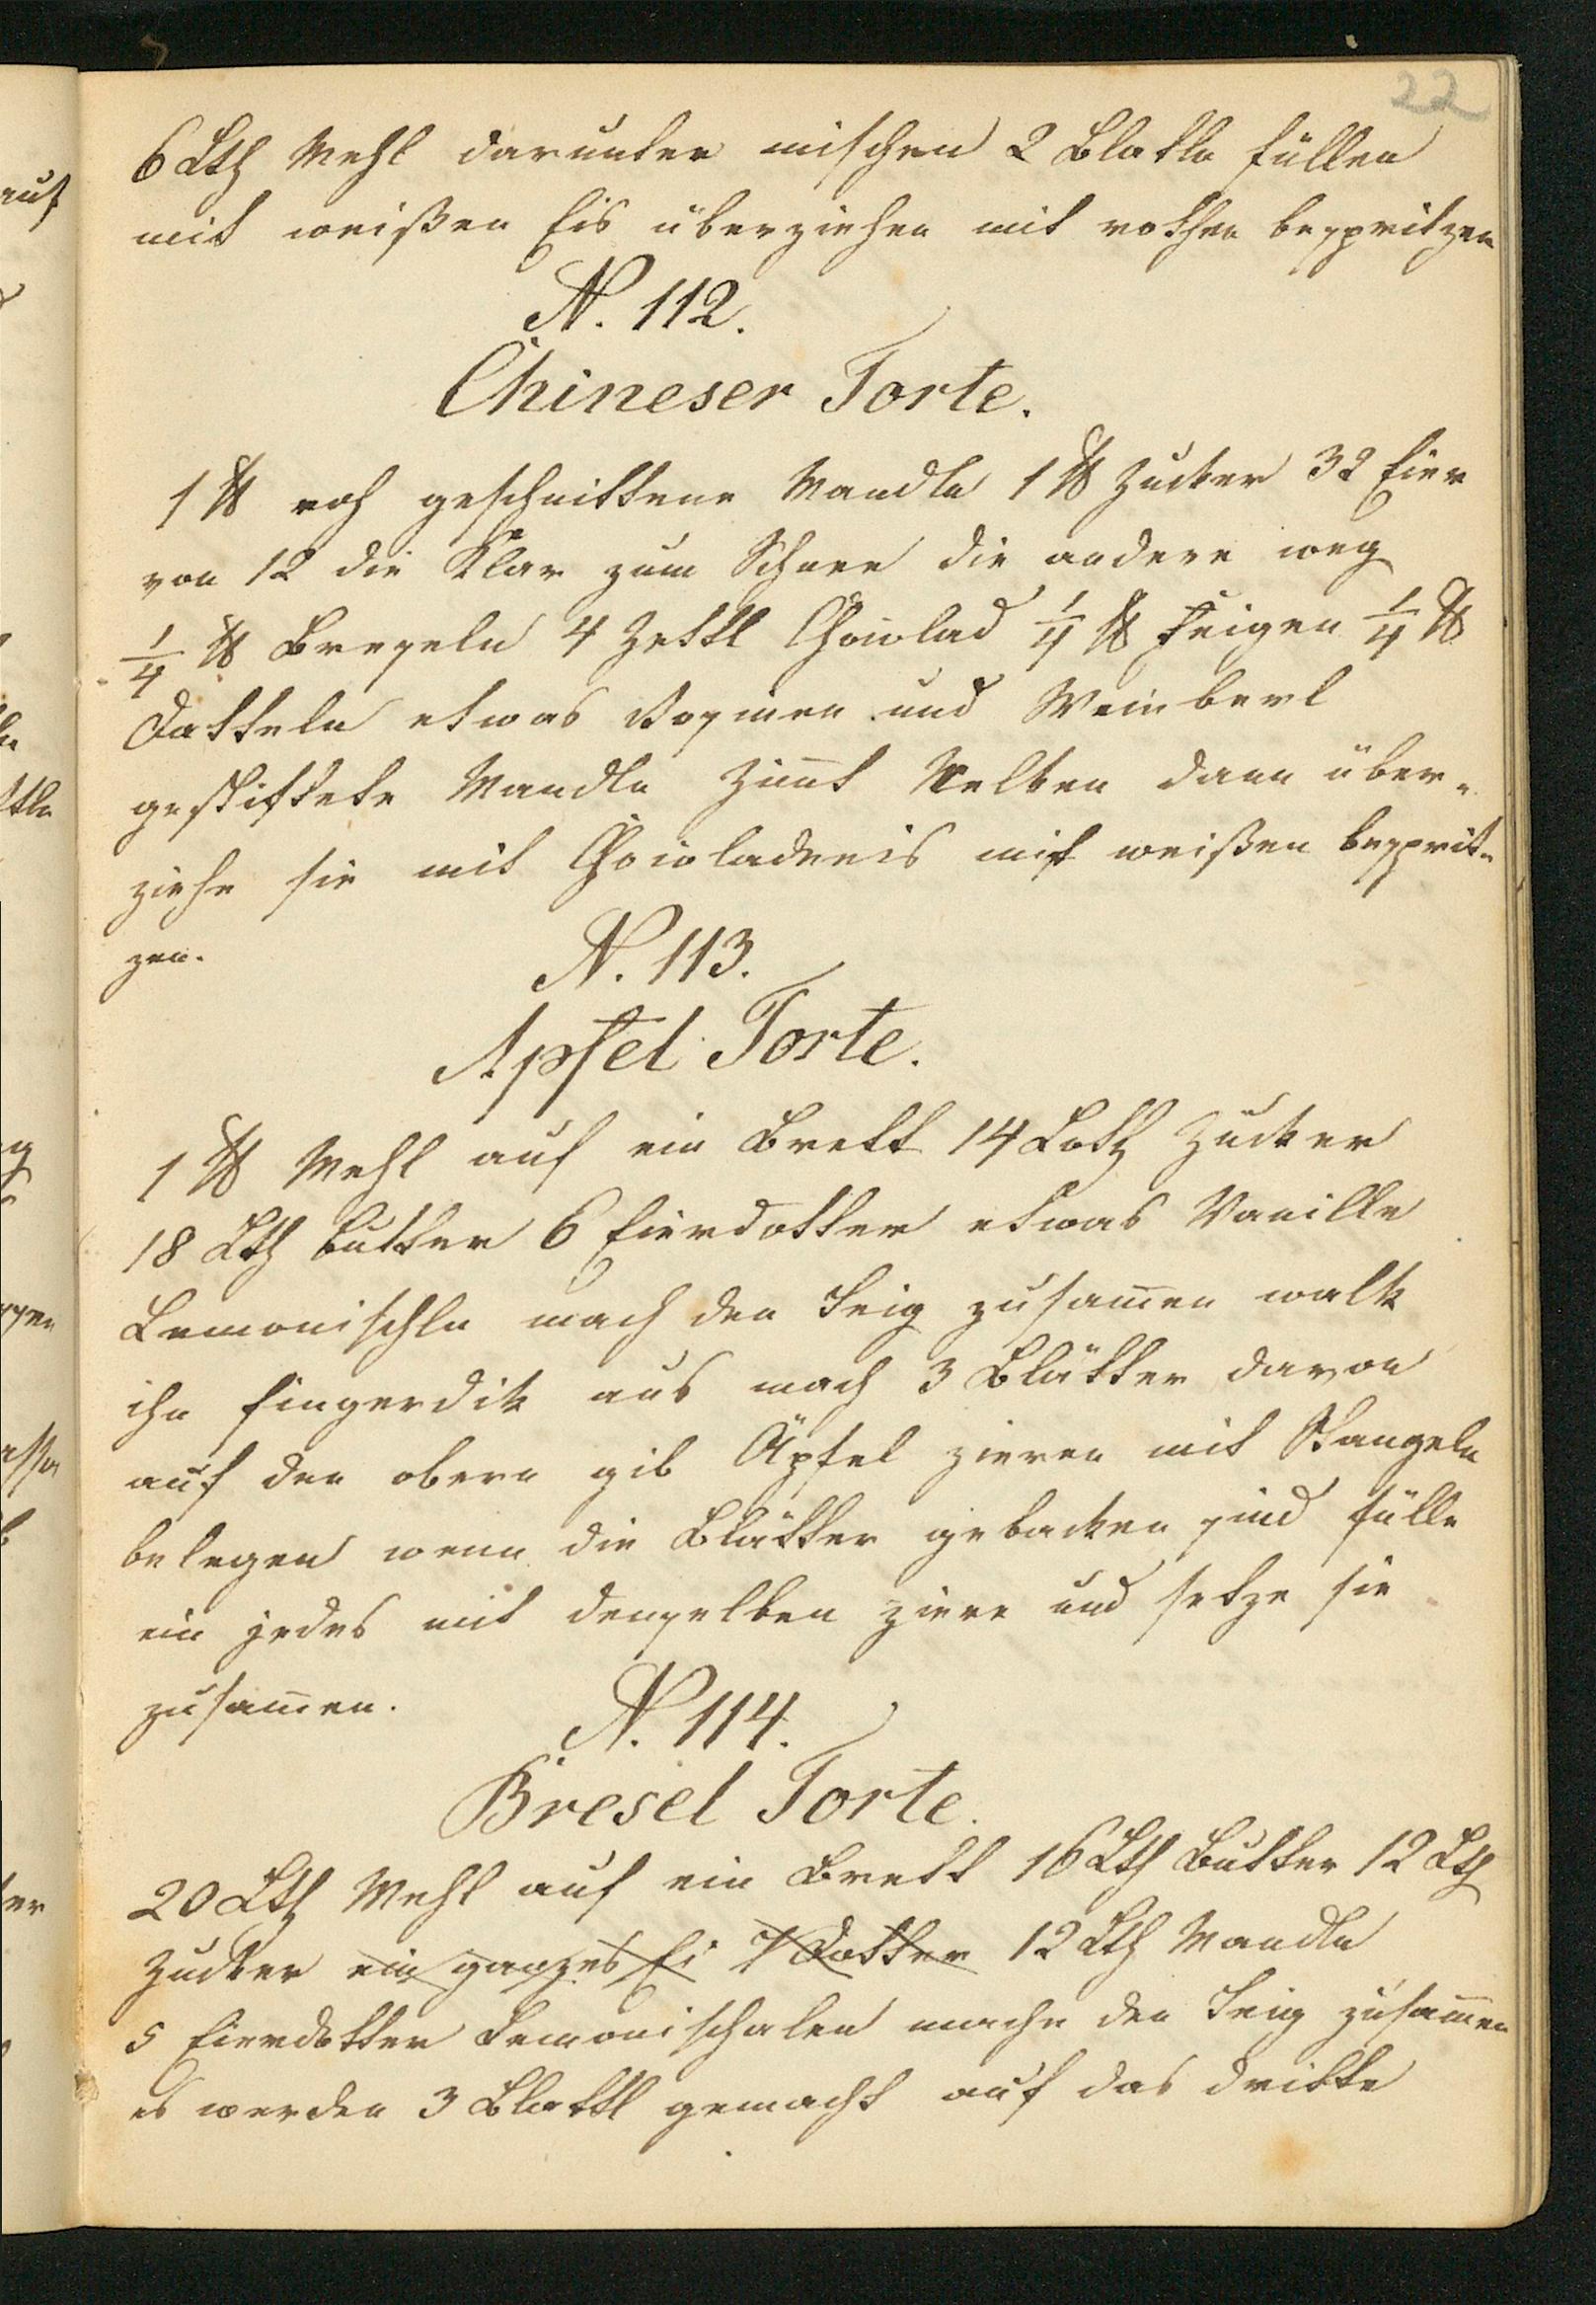 22
6 Lth Mehl darunter mischen 2 Blattln füllen
mit weißen Eis überziehen mit rothen bespritzen
N. 112.
Chineser Torte.
1 ℔ roh geschnittene Mandln 1 ℔ Zucker 32 Eier
von 12 die Klar zum Schnee die andere weg
1/4 ℔ Breseln 4 Zeltl Chocolad 1/4 ℔ Feigen 1/4 ℔
Datteln etwas Rosinen und Weinberl
gestiftete Mandln Zimt Nelken dann über-
ziehe sie mit Chocoladeeis mit weißen besprit-
zen.
N. 113.
Apfel Torte.
1 ℔ Mehl auf ein Brett 14 Loth Zucker
18 Lth Butter 6 Eierdotter etwas Vanille
Lemonischln mach den Teig zusam̄en walk
ihn fingerdik aus mach 3 Blätter davon
auf den obern gib Äpfel zieren mit Stangeln
belegen wenn die Blätter gebacken sind fülle
ein jedes mit denselben ziere und setze sie
zusam̄en.
N. 114.
Bresel Torte.
20 Lth Mehl auf ein Brett 16 Lth Butter 12 Lth
Zucker ein ganzes Ei 7 Dotter 12 Lth Mandln
5 Eierdotter Lemonischalen mache den Teig zusam̄en
es werden 3 Blattl gemacht auf das dritte